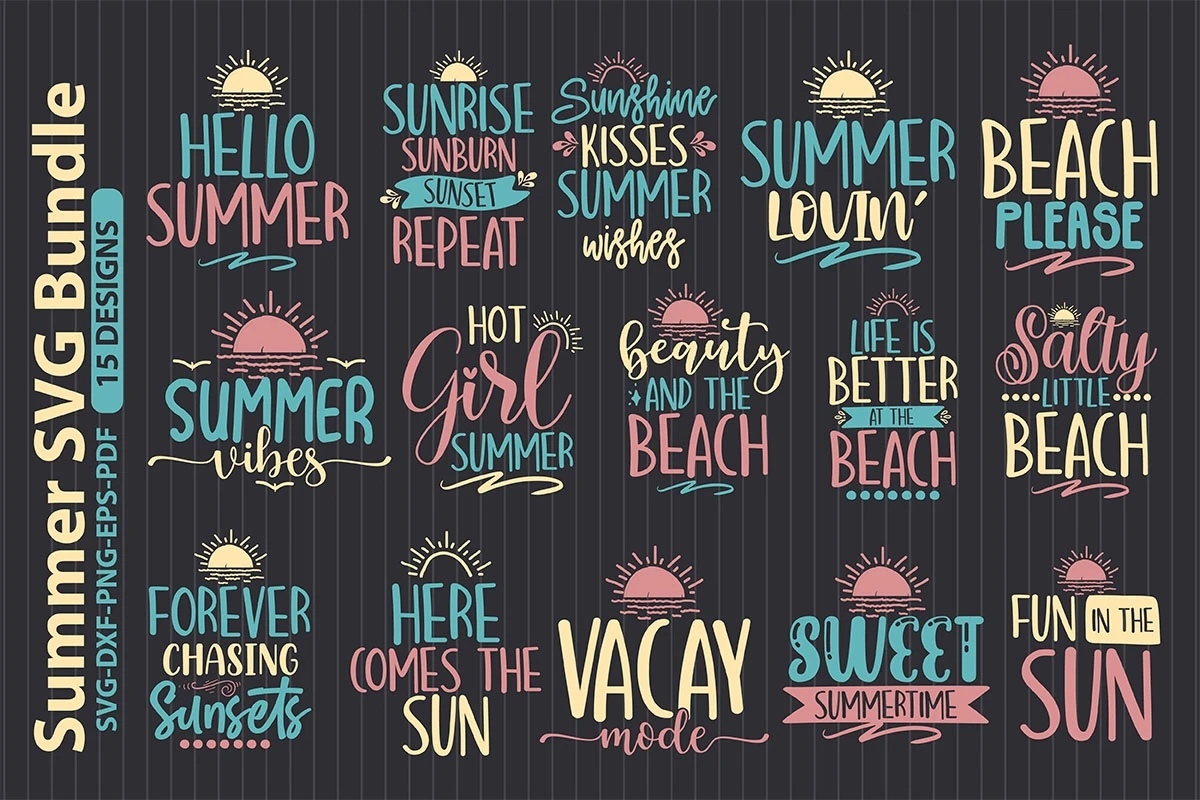 Summer SVG Bundle
15 DESIGNS
SVG-DXF-PNG-EPS-PDF
HELLO
SUMMER
SUNRISE
SUNBURN
SUNSET
REPEAT
Sunshine
KISSES
SUMMER
wishes
SUMMER
LOVIN'
BEACH
PLEASE
SUMMER
vibes
HOT
Girl
SUMMER
beauty
AND THE
BEACH
LIFE IS
BETTER
AT THE
BEACH
Salty
LITTLE
BEACH
FOREVER
CHASING
Sunsets
HERE
COMES THE
SUN
VACAY
mode
SWEET
SUMMERTIME
FUN IN THE
SUN